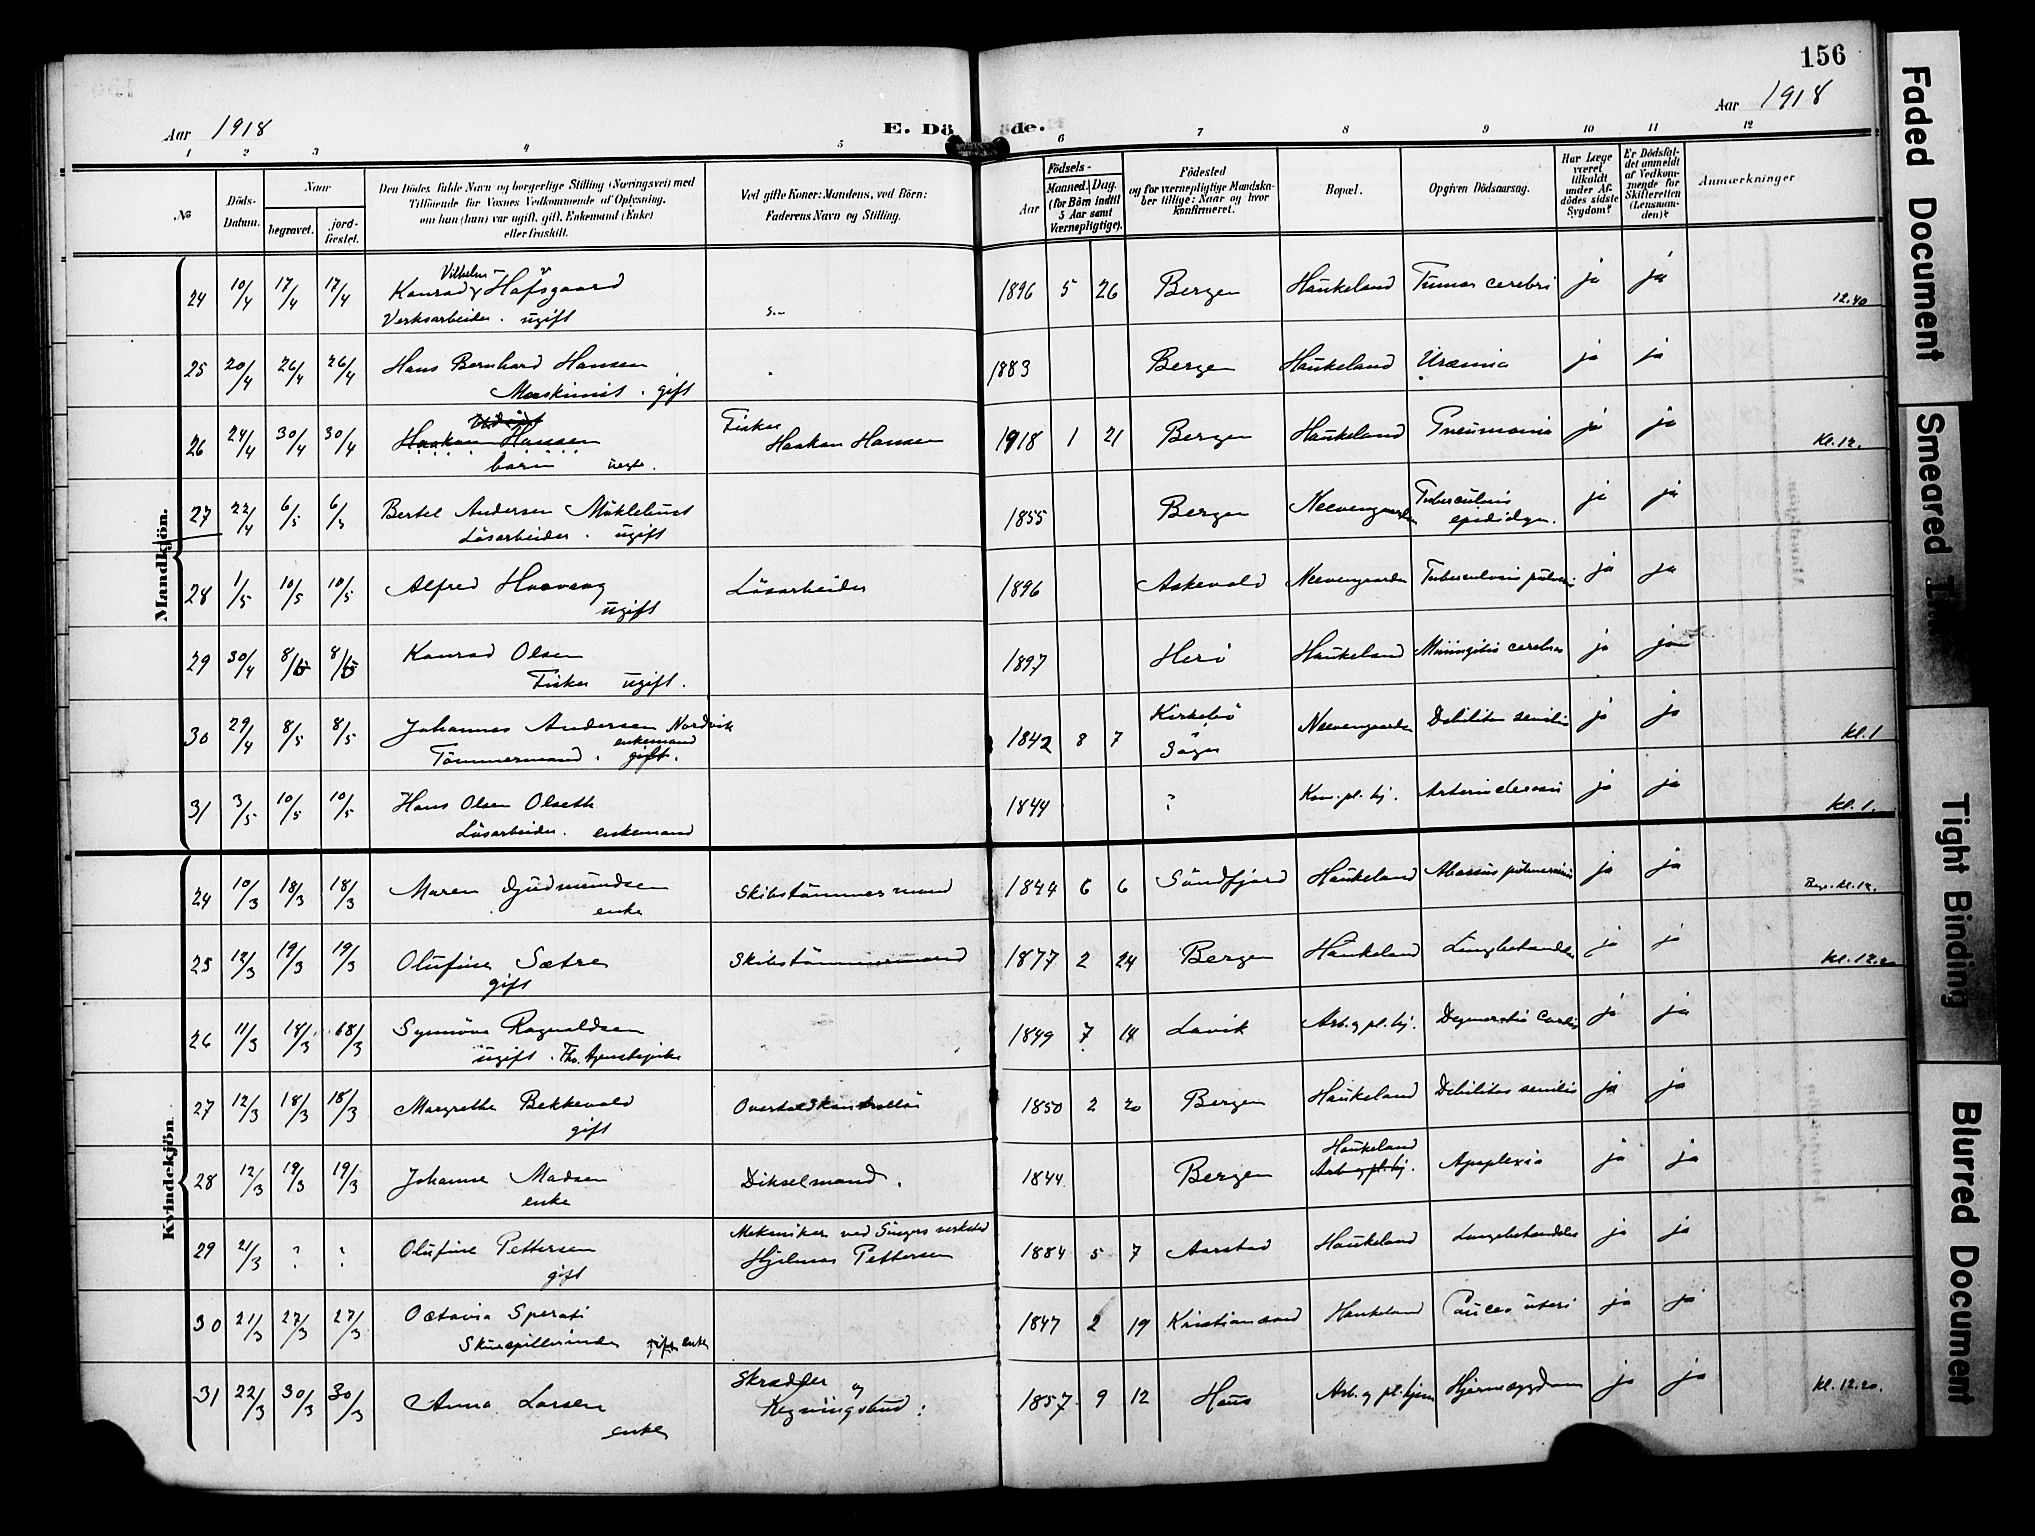 156
Aar 1918
E. Döde.
Aar 1918
1 2 3 4 5 6 7 8 9 10 11 12
№
Döds-Datum.
Naar
begravet.
jord-fæstet.
Den Dödes fulde Navn og borgerlige Stilling (Næringsvei) med
Tilföiende for Voxnes Vedkommende af Oplysning,
om han (hun) var ugift, gift, Enkemand (Enke)
eller fraskilt.
Ved gifte Koner: Mandens, ved Börn:
Faderens Navn og Stilling.
Födsels-
Aar
Maaned. Dag.
(for Börn indtil
5 Aar samt
Værnepligtige).
Födested
og for værnepligtige Mandska-
ber tillige: Naar og hvor
konfirmeret.
Bopæl.
Opgiven Dödsaarsag.
Har Læge
været
tilkaldt
under Af-
dödes sidste
Sygdom?
Er Dödsfal-
det anmeldt
af Vedkom-
mende for
Skifteretten
(Lensman-
den)?
Anmærkninger
Mandkjön.
24 10/4 17/4 17/4 Konrad Vilhelm Hofsgaard 1896 5 26 Bergen Haukeland Tumor cerebri ja ja 12.40
Verksarbeider. ugift
25 20/4 26/4 26/4 Hans Bernhard Hansen 1883 Bergen Haukeland Uræmia ja ja
Maskinist. gift
26 24/4 30/4 30/4 Haakon Hansen Fisker Haakon Hansen 1918 1 21 Bergen Haukeland Pneumonia ja ja Kl. 12.
barn uegte.
27 22/4 6/5 6/5 Bertel Andersen Myklebust 1855 Bergen Neevengaarden Tuberculosis epididym. ja ja
Lösarbeider. ugift
28 1/5 10/5 10/5 Alfred Haavaag Lösarbeider 1896 Askevold Neevengaarden Tuberculosis pulm. ja ja
ugift
29 30/4 8/5 8/5 Konrad Olsen 1897 Herö Haukeland Miningitis cerebros ja ja
Fisker ugift.
30 29/4 8/5 8/5 Johannes Andersen Nordvik 1842 8 7 Kirkebö Sogn Neevengaarden Debilitas senilis ja ja Kl. 1
Tömmermand. enkemand gift.
31 3/5 10/5 10/5 Hans Olsen Olseth 1844 ? Kom. pl. hj. ja ja Kl. 1.
Lösarbeider. enkemand
Kvindekjön
24 10/3 18/3 18/3 Maren Gudmundsen Skibstömmermand 1844 6 6 Söndfjord Haukeland ja ja Kl. 12.
enke
25 12/3 19/3 19/3 Olufine Sætre Skibstömmermand 1877 2 24 Bergen Haukeland Lungebetændelse ja ja Kl. 12.20
gift
26 11/3 18/3 18/3 Synnöve Ragnvaldsen 1849 7 14 Lavik Arb. og pl. hj. Degeneratio Cordis ja ja
ugift.
27 12/3 18/3 18/3 Margrethe Bekkevold Overtoldkontrollör 1850 2 20 Bergen Haukeland Debilitas senilis ja ja
gift
28 12/3 19/3 19/3 Johanne Madsen Dikselmand. 1844 Bergen Haukeland Arb. og pl. hj. Apoplexia ja ja
enke
29 21/3 ? ? Olufine Pettersen Mekaniker ved Singers verksted Hjelmar Pettersen 1884 5 7 Aarstad Haukeland Lungebetændelse ja ja
gift
30 21/3 27/3 27/3 Octavia Sperati 1847 2 19 Kristiansand Haukeland Cancer uteri ja ja
Skuespillerinde gift enke
31 22/3 30/3 30/3 Anna Larsen Skrædder og Regningsbud. 1857 9 12 Haus Arb. og pl. hjem ja ja Kl. 12.20.
enke
Faded Document
Smeared
Tight Binding
Blurred Document